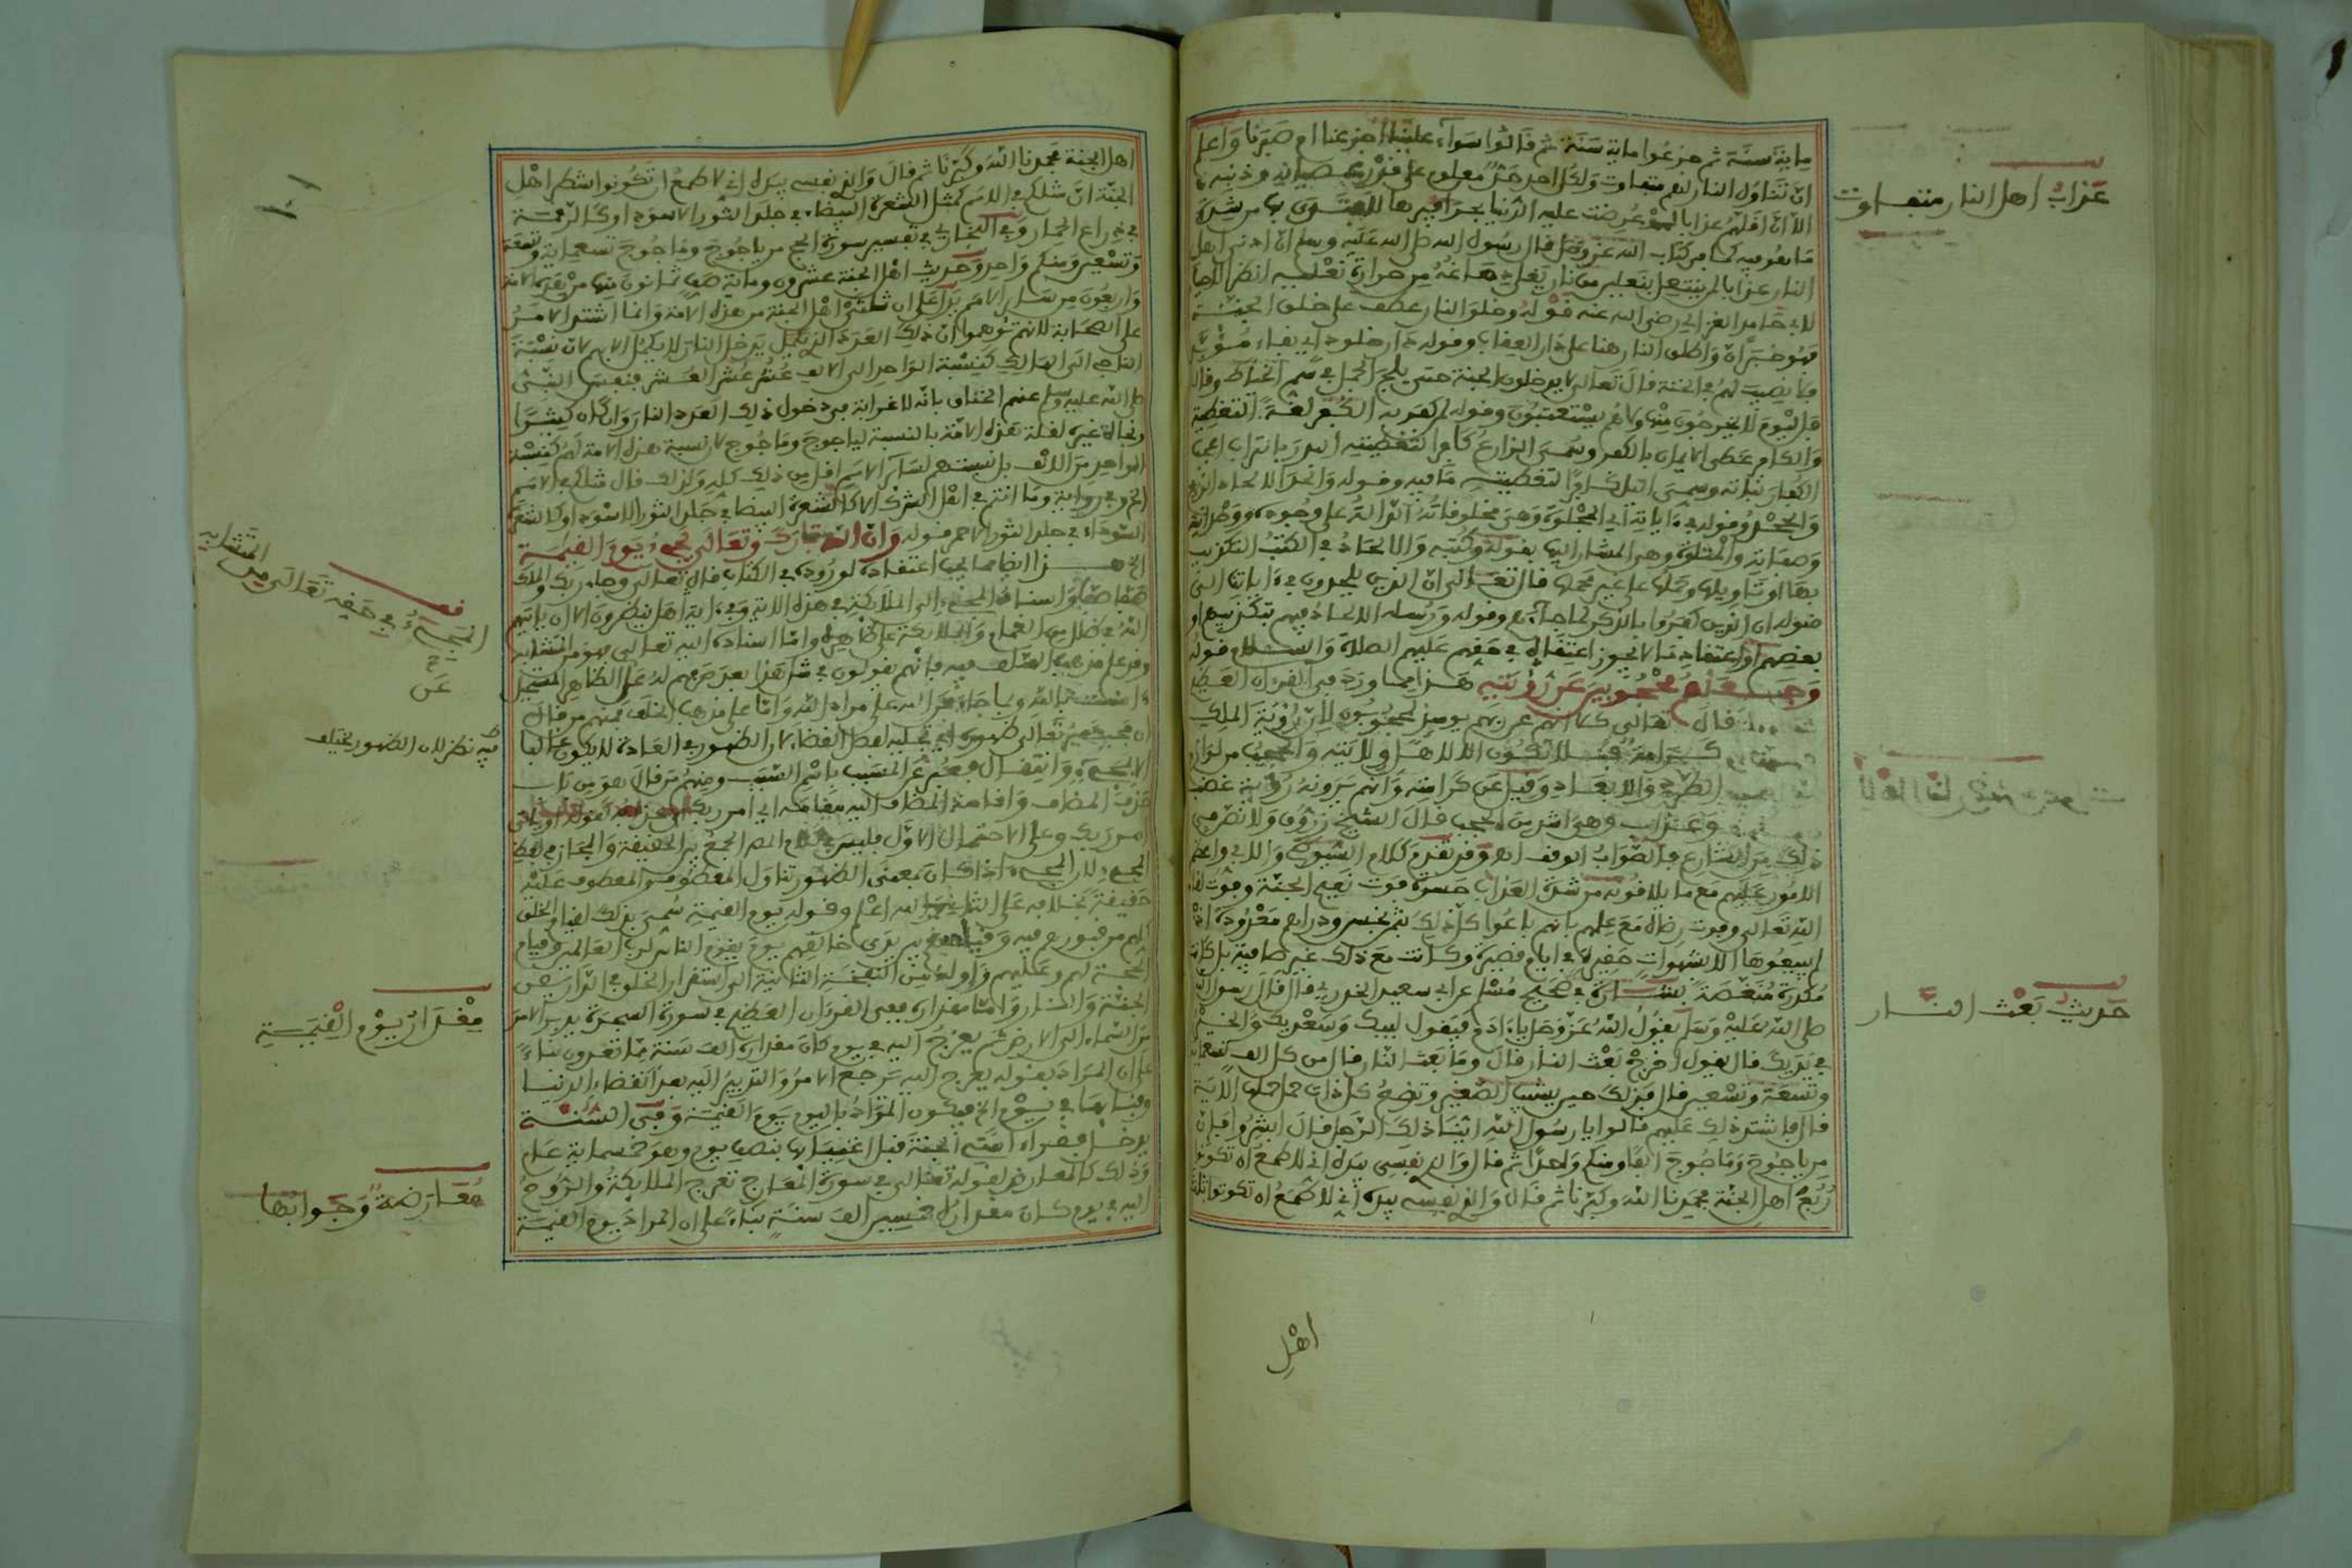 مايةَ سنَة ثم جزعوا ماية سَنَة ثم قالوا سواء علينا اجزعنا ام صَبَرنا واعلم
ان تناول النار لهم متفاوت ولكل احد حدّ معلوم على قدر عصيانه وذنبه
الا ان اقلهم عذابا لو عُرضت عليه الدنيا بحذافيرها لافتدى بها من شدة
ما هو فيه كما في كتاب الله عز وجل قال رسول الله صلى الله عليه وسلم ان ادنى اهل
النار عذابا لمن ينتعل بنعلين من نار يغلي دماغه من حرارة نعليه انظر الاحيا
لابي حامد الغزالي رضي الله عنه قوله وخلق النار عطف على خلق الجنة
وقوله دار خلود اي بقاء مُؤبد
فلا نصيب لهم في الجنة قال تعالى لا يدخلون الجنة حتى يلج الجمل في سم الخياط وقال
فاليوم لا يخرجون منها ولا هم يستعتبون وقوله لمن كفر به الكفر لغة التغطية
والكافر غطى الايمان بالكفر وسمي الزارع كافرا لتغطيته البذر بالتراب اعجب
الكفار نباته وسمي الليل كافرا لتغطيته ما فيه وقوله والحد الالحاد الزيغ
والجحد وقوله في ءاياته اي المجلوة وهي مخلوقاته الدالة على وجوده ووحدانيته
وصفاته والمتلوة وهي المشار اليها بقوله وكتبه والالحاد في الكتب التكذيب
بها او تاويلها وحملها على غير محملها قال تعالى ان الذين يلحدون في ءاياتنا الى
قوله ان الذين كفروا بالذكر لما جاءهم وقوله ورسله الالحاد فيهم بتكذيبهم او
بعضهم او اعتقاد ما لا يجوز اعتقاده في حقهم عليهم الصلاة والسلام قوله
وجعلهم محجوبين عن رؤيته هذا مما ورد في القرءان العظيم
قال تعالى كلا انهم عن ربهم يومئذ لمحجوبون لان رؤية الملك
كرامة فلا تكون الا لاهل ولايته والحجب من لوازم
الطرد والابعاد وقيل عن كرامته وانهم يرونه رؤية غضب
وعذاب وهي اشد من الحجب قال الشيخ زروق ولا نص في
ذلك من الشارع فالصواب الوقف اه وقد تقدم كلام الشيوخ والابي واعظم
الامور عليهم مع ما يلاقونه من شدة العذاب حسرة فوت نعيم الجنة وفوت لقاء
الله تعالى وفوت رضاه مع علمهم بانهم باعوا كل ذلك بثمن بخس دراهم معدودة اذ
لم يبيعوها الا بشهوات حقيرة في ايام قصيرة وكانت مع ذلك غير صافية بل كانت
مكدرة منغصة بشارة في صحيح مسلم عن ابي سعيد الخدري قال قال رسول الله
صلى الله عليه وسلم يقول الله عز وجل يا ءادم فيقول لبيك وسعديك والخير
في يديك قال يقول اخرج بعث النار قال وما بعث النار قال من كل الف تسعماية
وتسعة وتسعين قال فذلك حين يشيب الصغير وتضع كل ذات حمل حملها الاية
قال فاشتد ذلك عليهم قالوا يا رسول الله اينا ذلك الرجل قال ابشروا فان
من ياجوج وماجوج الفا ومنكم واحدا ثم قال والذي نفسي بيده اني لاطمع ان تكونوا
رُبُع اهل الجنة فحمدنا الله وكبرنا ثم قال والذي نفسي بيده اني لاطمع ان تكونوا ثلث
اهل
عذاب اهل النار متفاوت
حديث بعث النار
اهل الجنة فحمدنا الله وكبرنا ثم قال والذي نفسي بيده اني لاطمع ان تكونوا شطر اهل
الجنة ان مثلكم في الامم كمثل الشعرة البيضاء في جلد الثور الاسود او كالرقمة
في ذراع الحمار وفي البخاري في تفسير سورة الحج من ياجوج وماجوج تسعماية وتسعة
وتسعين ومنكم واحد وحديث اهل الجنة عشرون وماية صف ثمانون منها من هذه الامة
واربعون من سائر الامم يدل على ان ثلثي اهل الجنة من هذه الامة وانما اشتد الامر
على الصحابة لانهم توهموا ان ذلك العدد الذي يدخل النار لا يكمل الا بهم لان نسبة
الناجي الى الهالك كنسبة الواحد الى الالف عُشر عُشر العُشر فنفس النبي
صلى الله عليه وسلم عنهم الخناق بانه لا غرابة في دخول ذلك العدد النار وان كان كثيرا
الواحد من الالف بل نسبتهم لسائر الامم اقل من ذلك كله ولذلك قال مثلكم في الامم
الخ وفي رواية وما انتم في اهل الشرك الا كالشعرة البيضاء في جلد الثور الاسود او كالشعرة
السوداء في جلد الثور الاحمر قوله وان الله تبارك وتعالى يجيء يوم القيمة
الخ هذا ايضا مما يجب اعتقاده لوروده في الكتاب قال تعالى وجاء ربك والملك
صفا صفا واسناد المجيء الى الملائكة في هذه الاية وفي ءاية هل ينظرون الا ان ياتيهم
الله في ظلل من الغمام والملائكة على ظاهره واما اسناده اليه تعالى فهو من المتشابه
حذف المضاف واقامة المضاف اليه مقامه اي امر ربك
امر ربك وعلى الاحتمال الاول فليس في كلام المص الجمع بين الحقيقة والمجاز في لفظ
المجيء لان المجيء اذا كان بمعنى الظهور تناول المعطوف والمعطوف عليه
حقيقة بخلافه على الثاني والله اعلم وقوله يوم القيمة سُمي بذلك لقيام الخلق
كلهم من قبورهم فيه وقيامهم بين يدي خالقهم يوم يقوم الناس لرب العالمين وقيام
الحجة لهم وعليهم واوله من النفخة الثانية الى استقرار الخلق في الدارين
الجنة والنار واما مقداره ففي القرءان العظيم في سورة السجدة يدبر الامر
من السماء الى الارض ثم يعرج اليه في يوم كان مقداره الف سنة مما تعدون بناء
على ان المراد بقوله يعرج اليه يرجع الامر والتدبير اليه بعد انقضاء الدنيا
وفنائها في يوم الخ فيكون المراد باليوم يوم القيمة وفي السنة
يدخل فقراء امتي الجنة قبل اغنيائها بنصف يوم وهو خمسماية عام
وذلك كالمعارض لقوله تعالى في سورة المعارج تعرج الملائكة والروح
اليه في يوم كان مقداره خمسين الف سنة بناء على ان المراد يوم القيمة
المجيء في حقه تعالى من المتشابه
فيه نظر لان الظهور يختلف
مقدار يوم القيمة
معارضة وجوابها